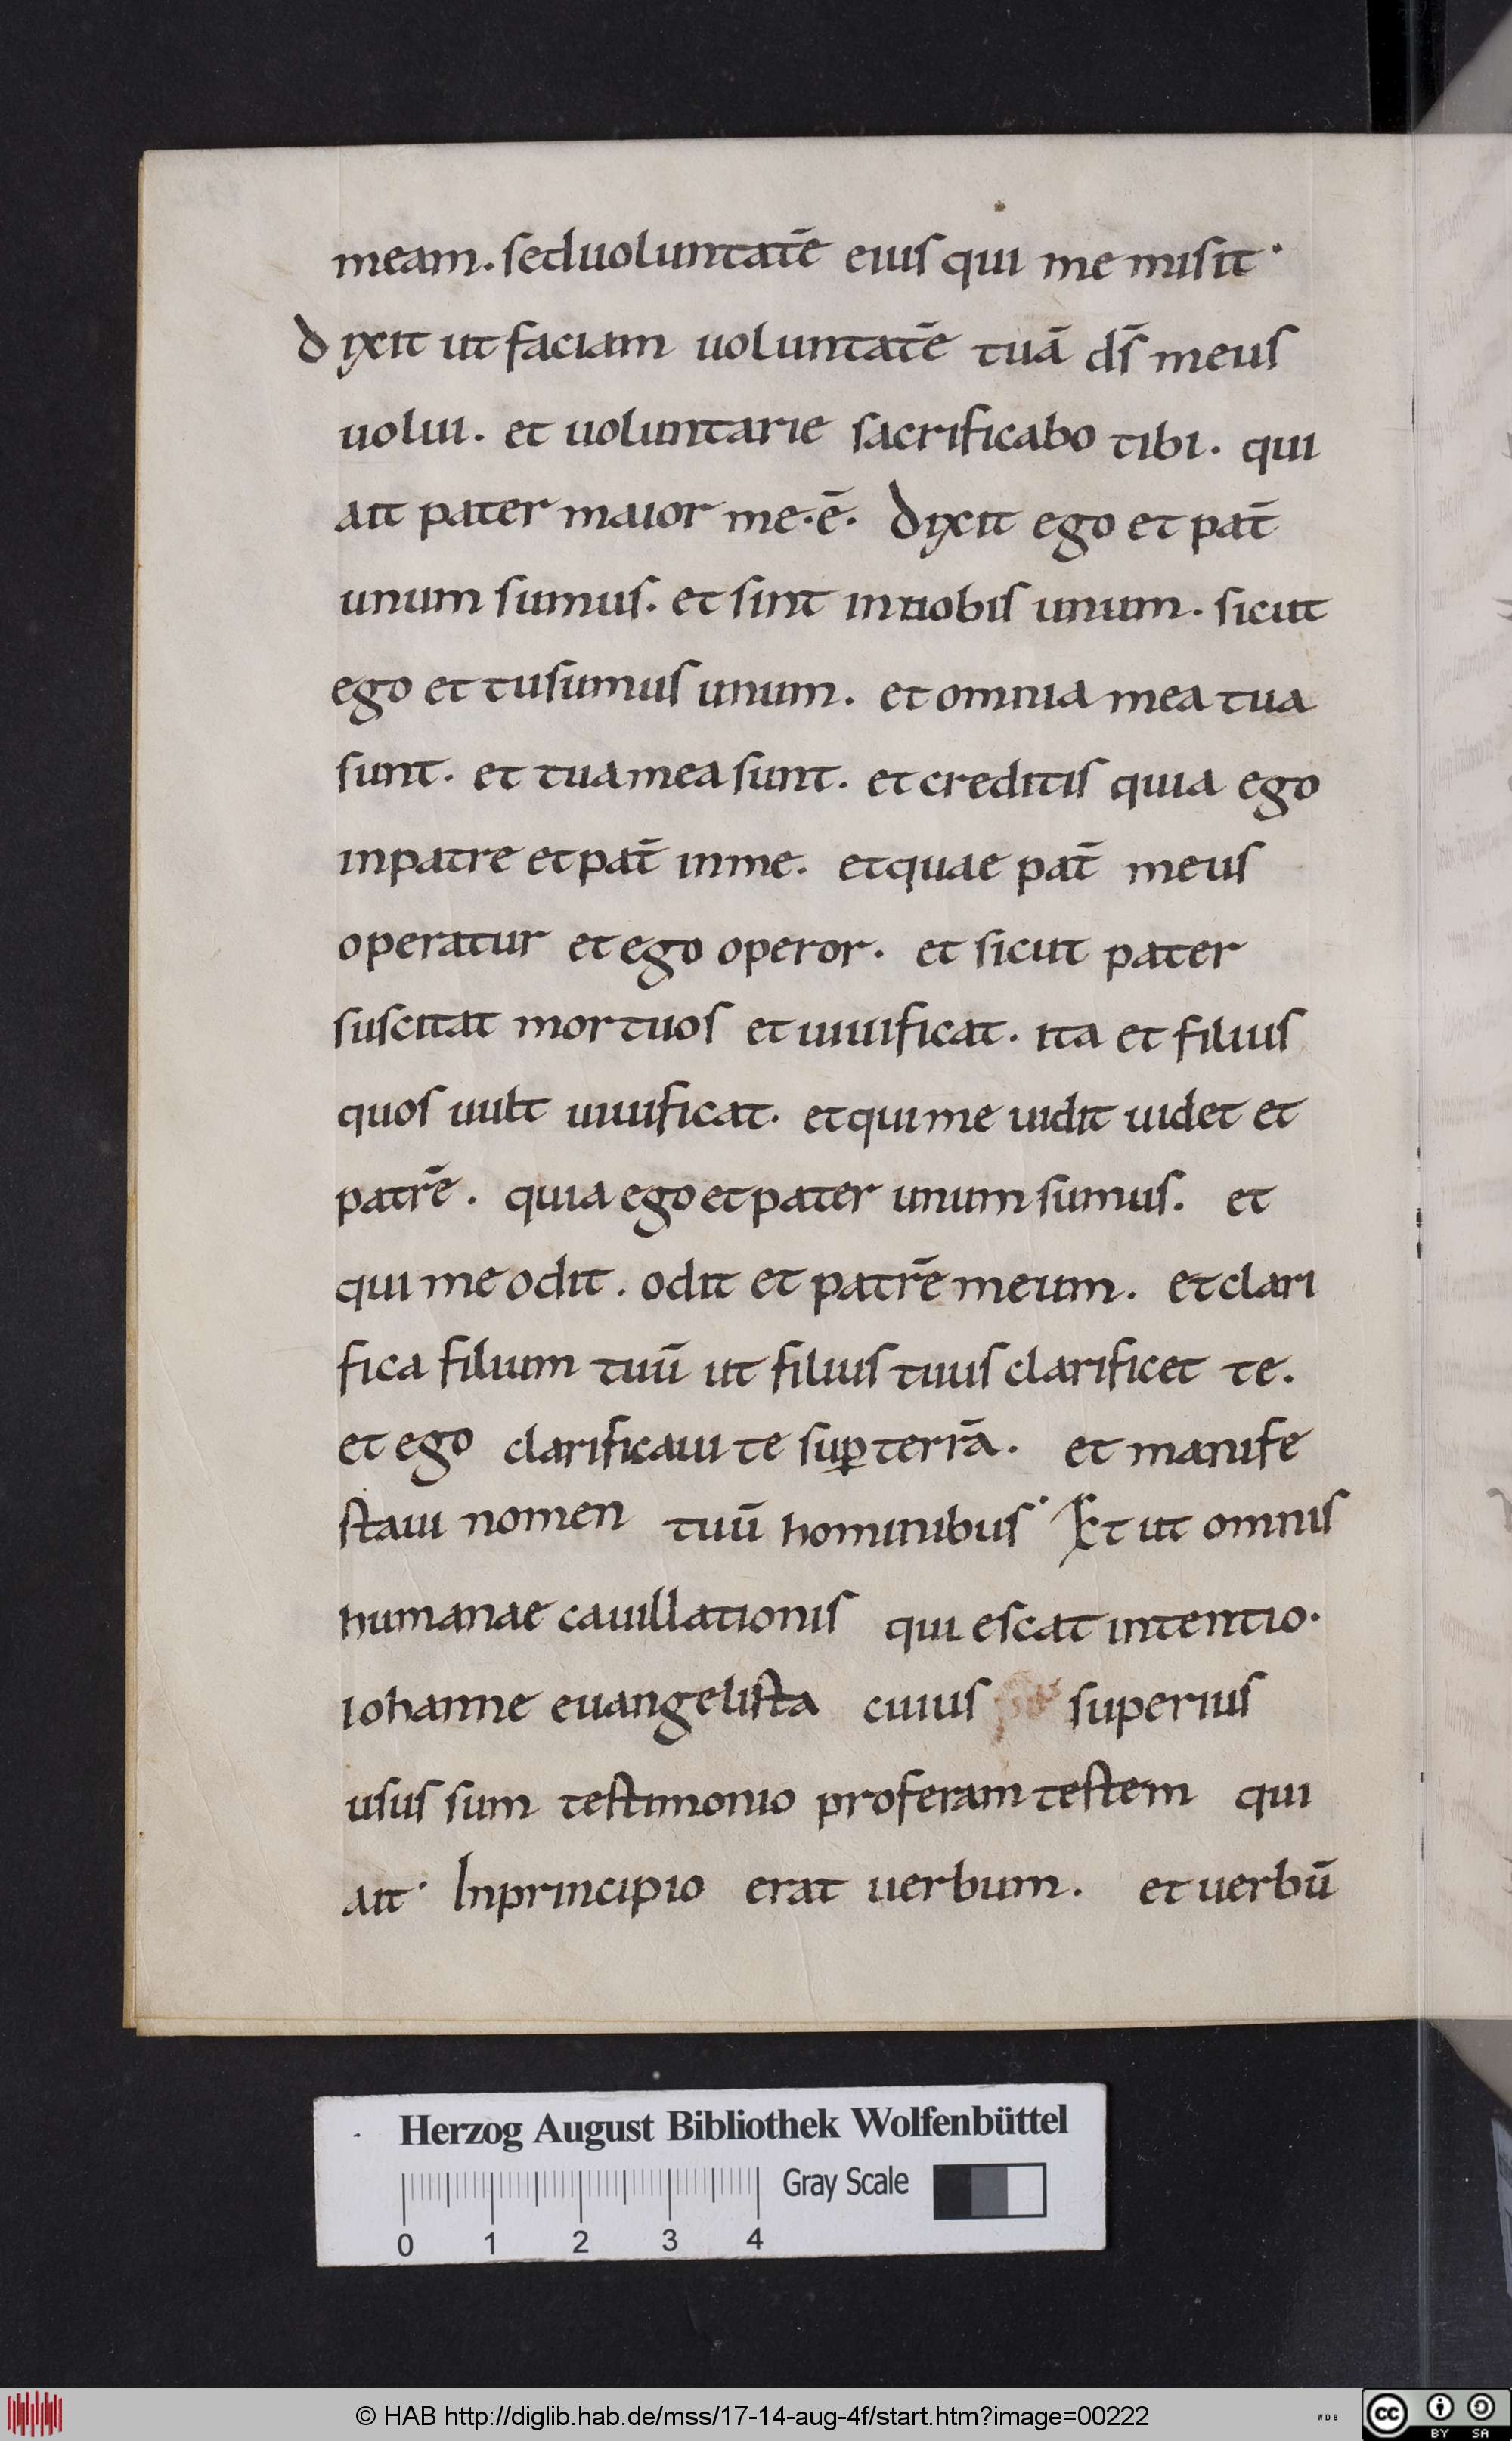 meam. sed uoluntatē eius qui me misit·
Dixit ut faciam uoluntatē tuā ds̄ meus
uolui. et uoluntarie sacrificabo tibi. qui
ait pater maior me·ē· Dixit ego et pat̄
unum sumus. et sint in nobis unum. sicut
ego et tu sumus unum. et omnia mea tua
sunt. et tua mea sunt. et creditis quia ego
in patre et pat̄ in me. et quae pat̄ meus
operatur et ego operor. et sicut pater
suscitat mortuos et uiuificat. ita et filius
quos uult uiuificat. et qui me uidit uidet et
patrē. quia ego et pater unum sumus. et
qui me odit. odit et patrē meum. et clari
fica filium tuū ut filius tuus clarificet te.
et ego clarificaui te suꝑ terrā. et manife
staui nomen tuū hominibus· Et ut omnis
humanae cauillationis quiescat intentio·
iohanne euangelista cuius superius
usus sum testimonio proferam testem qui
ait· In principio erat uerbum. et uerbū
Herzog August Bibliothek Wolfenbüttel
Gray Scale
0 1 2 3 4
© HAB http://diglib.hab.de/mss/17-14-aug-4f/start.htm?image=00222
WDB
cc BY SA